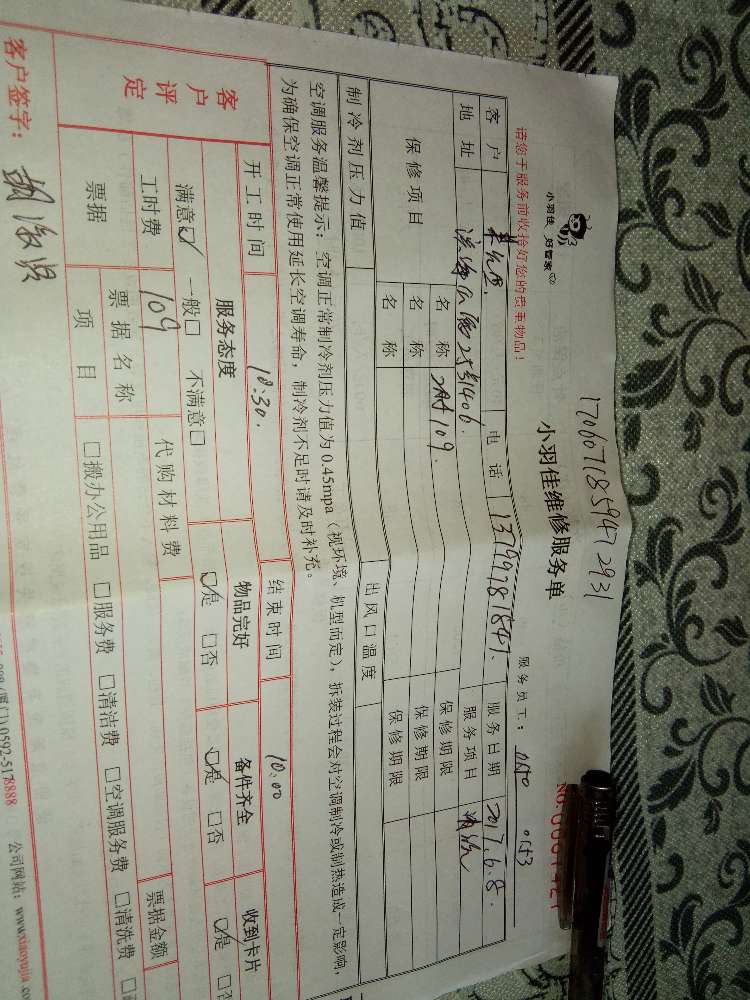 1706071859472931
小羽佳 好管家
小羽佳维修服务单
请您于服务前收拾好您的贵重物品！
服务员工： 0153
客户 电话 13799781847. 服务日期 2017.6.8.
地址 2531406. 服务项目 清洗
保修项目 名称 109. 保修期限
名称 保修期限
名称 保修期限
制冷剂压力值 出风口温度
空调服务温馨提示：空调正常制冷剂压力值为0.45mpa（视环境、机型而定），拆装过程会对空调制冷或制热造成一定影响，
为确保空调正常使用延长空调寿命，制冷剂不足时请及时补充。
开工时间 18:30. 结束时间 10:00
客户评定
服务态度 物品完好 备件齐全 收到卡片
满意☑ 一般□ 不满意□ ☑是 □否 ☑是 □否 ☑是 □否
工时费 109 代购材料费 票据金额
票据 票据名称
项目 □搬办公用品 □服务费 □清洁费 □空调服务费 □清洗费
客户签字： 胡淑贤
(厦门)0592-5178888 公司网站：www.xiaoyujia.com